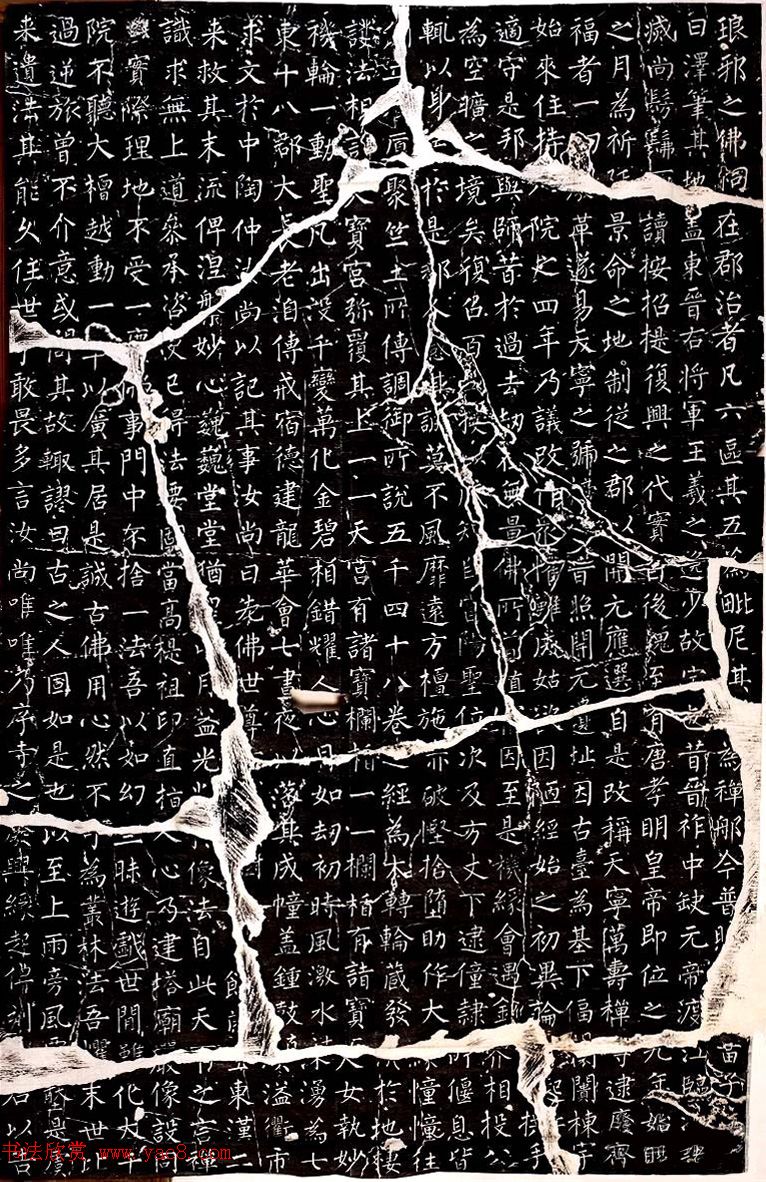 琅邪之佛祠在郡治者凡六區其五為毗尼其為禪那今普苗子
曰澤筆其地蓋東晉右將軍王羲之逸少故宅也昔晉祚中缺元帝渡江臨
滅尚髣髴讀按招提復興之代實後魏至有唐孝明皇帝即位之元年始
之月為祈景命之地制從之郡以開元應選自是改稱天寧萬壽禪寺逮廢齊
福者一切革遂易天寧之號普照開元遺址因古臺為基下偪闤闠棟宇
始來住持院之四年乃議改作雖庶姑欲因陋經始之初異論
適守是邦與師昔於過去劫無量佛所植因至是機緣會遇鍼芥相投
為空曠之境矣復召百聖位次及方丈下逮僮隸所偃息皆
輒以身於是郡其誠莫不風靡遠方檀施亦破慳捨隨助作大緣憧憧往
聚竺土所傳調御所說五千四十八卷之經為大轉輪藏發於地棲
談法相天寶宮弥覆其上一一天宮有諸寶欄楯一一欄楯有諸寶天女執妙
機輪一動聖凡出沒千變萬化金碧相錯耀人心目如劫初時風激水沫湧為七
東十八郡大長老洎傳戒宿德建龍華會七晝夜以落其成幢蓋鍾鼓填溢衢市
求文於中陶仲汝尚以記其事汝尚曰先佛世尊東漢
来救其末流俾涅槃妙心巍巍堂堂猶月益光像法自此天之言禪
識求無上道參承咨已得法要固當高提祖印直指人心乃建塔廟嚴像設同
實際理地不受一塵事門中不捨一法吾以如幻三昧遊戲世間雖化大千
院不聽大檀越動一以廣其居是誠古佛用心然不為叢林法吾懼末世
過逆旅曾不介意或問其故輒謬曰古之人固如是也以至上雨旁風墜是虞
来遺法其能久住世敢畏多言汝尚唯唯乃序寺之廢興緣起俾刻以告
书法欣赏 www.yac8.com